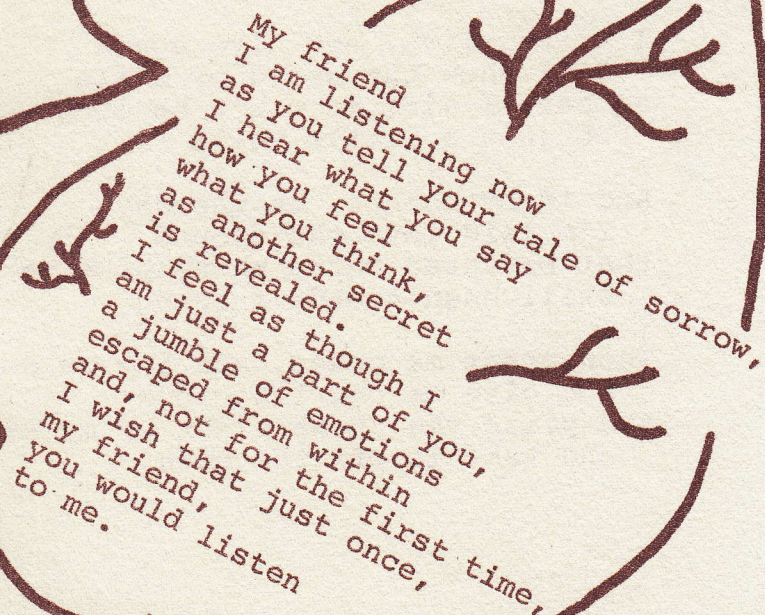 My friend
I am listening now
as you tell your tale of sorrow,
I hear what you say
how you feel
what you think,
as another secret
is revealed.
I feel as though I
am just a part of you,
a jumble of emotions
escaped from within
and, not for the first time,
I wish that just once,
my friend,
you would listen
to me.